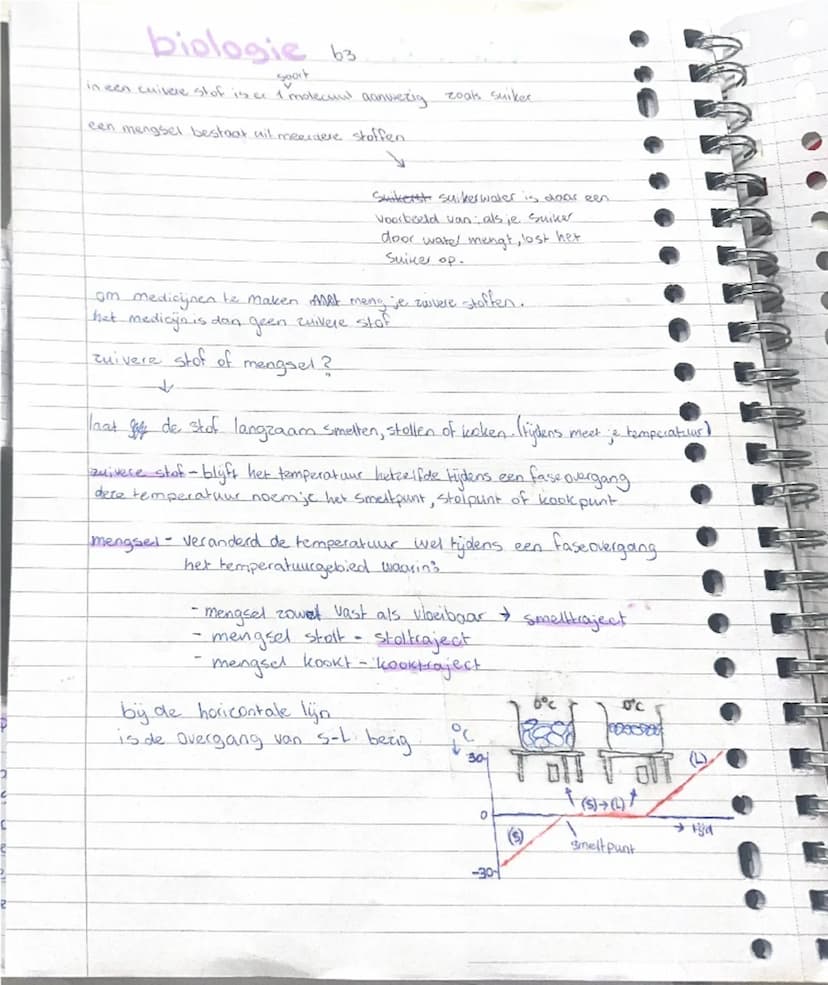 biologie b3
in een zuivere stof is er 1 soort molecuul aanwezig zoals suiker
een mengsel bestaat uit meerdere stoffen
suikerwater is daar een
voorbeeld van: als je suiker
door water mengt, lost het
suiker op.
om medicijnen te maken meng je zuivere stoffen.
het medicijn is dan geen zuivere stof
zuivere stof of mengsel?
laat de stof langzaam smelten, stollen of koken. (tijdens meet je temperatuur)
zuivere stof - blijft het temperatuur hetzelfde tijdens een faseovergang
deze temperatuur noem je het smeltpunt, stolpunt of kookpunt
mengsel - veranderd de temperatuur wel tijdens een faseovergang
het temperatuurgebied waarin:
- mengsel zowel vast als vloeibaar → smelttraject
- mengsel stolt - stoltraject
- mengsel kookt - kooktraject
bij de horicontale lijn
is de overgang van s-L bezig
0°C 0°C
°C
30
(L)
(S)→(L)
0
→ tijd
(S)
smeltpunt
-30